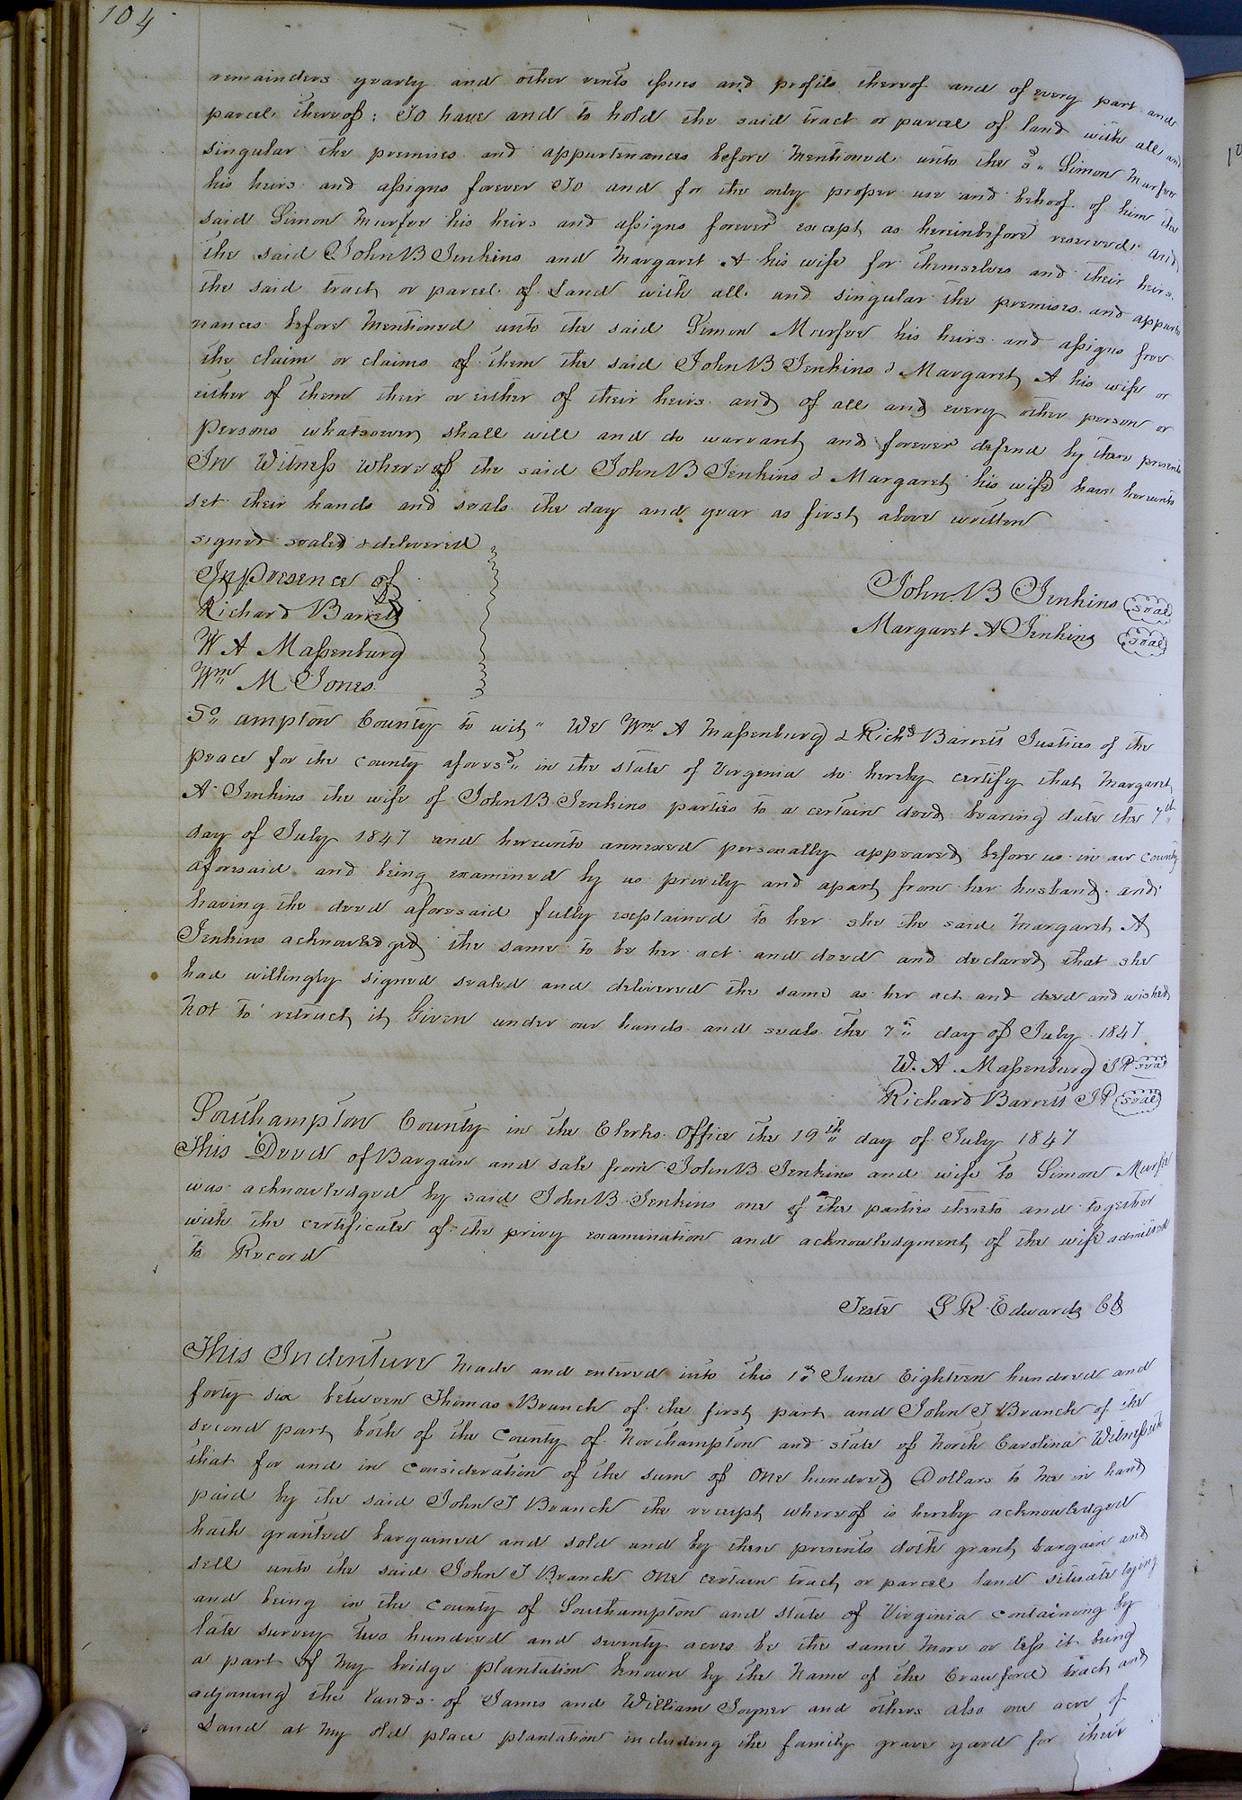 104
remainders yearly and other rents issues and profits thereof and of every part and
parcel thereof: To have and to hold the said tract or parcel of land with all and
singular the premises and appurtenances before mentioned unto the sd. Simon Murfee
his heirs and assigns forever To and for the only proper use and behoof of him the
said Simon Murfee his heirs and assigns forever except as hereinbefore reserved and
the said John B Jenkins and Margaret A his wife for themselves and their heirs
the said tract or parcel of Land with all and singular the premises and appurte
nances before mentioned unto the said Simon Murfee his heirs and assigns free
the claim or claims of them the said John B Jenkins & Margaret A his wife or
either of them their or either of their heirs and of all and every other person or
persons whatsoever shall will and do warrant and forever defend by these presents
In Witness whereof the said John B Jenkins & Margaret his wife have hereunto
set their hands and seals the day and year as first above written
signed sealed & delivered
In Presence of
John. B Jenkins seal
Richard Barrett
Margaret A Jenkins seal
W A Massenburg
Wm M Jones
So. ampton County to wit" We Wm A Massenburg & Richd Barrett Justices of the
peace for the county aforesd. in the state of Virginia do hereby certify that Margaret
A Jenkins the wife of John B Jenkins parties to a certain deed bearing date the 7th
day of July 1847 and hereunto annexed personally appeared before us in our county
aforesaid and being examined by us privily and apart from her husband and
having the deed aforesaid fully explained to her she the said Margaret A
Jenkins acknowledged the same to be her act and deed and declared that she
had willingly signed sealed and delivered the same as her act and deed and wished
not to retract it Given under our hands and seals the 7th day of July 1847
W. A. Massenburg JP seal
Richard Barrett JP seal
Southampton County in the Clerks Office the 19th day of July 1847
This Deed of Bargain and sale from John B Jenkins and wife to Simon Murfee
was acknowledged by said John B Jenkins one of the parties thereto and together
with the certificate of the privy examination and acknowledgment of the wife admitted
to Record
Teste L R Edwards Clk
This Indenture made and entered into this 1st June Eighteen hundred and
forty six between Thomas Branch of the first part and John T Branch of the
second part both of the County of Northampton and state of North Carolina Witnesseth
that for and in consideration of the sum of one hundred Dollars to me in hand
paid by the said John T Branch the receipt whereof is hereby acknowledged
hath granted bargained and sold and by these presents doth grant bargain and
sell unto the said John T Branch one certain tract or parcel land situate lying
and being in the County of Southampton and state of Virginia containing by
late survey two hundred and seventy acres be the same more or less it being
a part of my bridge plantation known by the name of the Crawford tract and
adjoining the lands of James and William Joyner and others also one acre of
Land at my old place plantation including the family grave yard for their